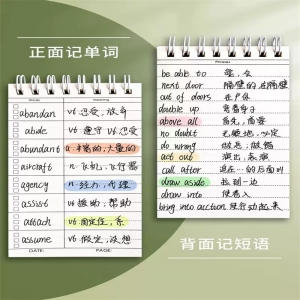 正面记单词
abandan vt.忍受,放弃
abide vt.遵守 vt.忍受
abundant a.丰富的,大量的
aircraft n.飞机,飞行器
agency n.经办,代理
assist vt.援助,帮助
attach vt.固定住,系
assume vt.假定,设想
DATE: PAGE:
be able to 能,会
next door 隔壁的
out of doors 在户外
double up 弯着身子
above all 首先,首要
no doubt 无疑地,必定
do wrong 做恶,做错
act out 演出,表演
call after 追在…的后面叫
draw aside 拉到一边
draw into 使卷入
bring into auction 使行动起来
背面记短语